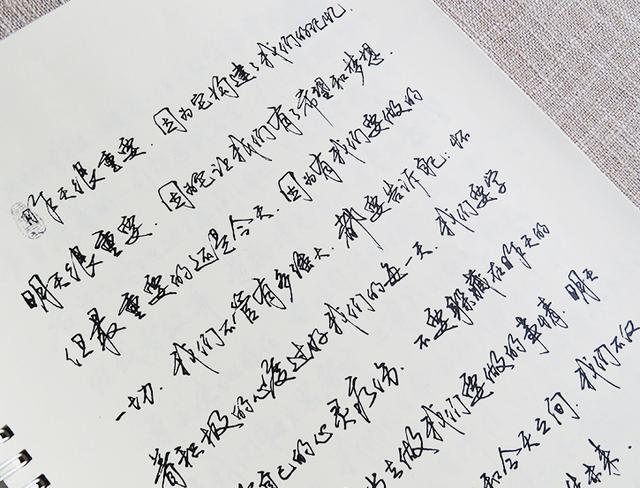 昨天很重要.因为它构建了我们的记忆.
明天很重要.因为它让我们有了希望和梦想.
但最重要的还是今天.因为有我们要做的
一切.我们不管有多强大.都要告诉自己:怀
着积极的心态过好我们的每一天.我们要学
自己的心灵疗伤.不要躲藏在昨天的
去做我们要做的事情.明天
和今天之间.我们不仅
未来.